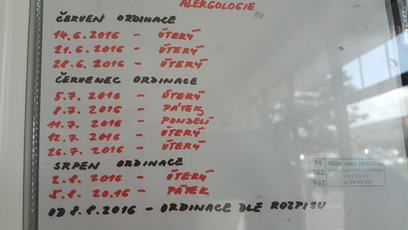 ALERGOLOGIE
ČERVEN ORDINACE
14.6.2016 - ÚTERÝ
21.6.2016 - ÚTERÝ
28.6.2016 - ÚTERÝ
ČERVENEC ORDINACE
5.7.2016 - ÚTERÝ
8.7.2016 - PÁTEK
11.7.2016 - PONDĚLÍ
12.7.2016 - ÚTERÝ
26.7.2016 - ÚTERÝ
SRPEN ORDINACE
2.8.2016 - ÚTERÝ
5.8.2016 - PÁTEK
OD 8.8.2016 - ORDINACE DLE ROZPISU
74
152